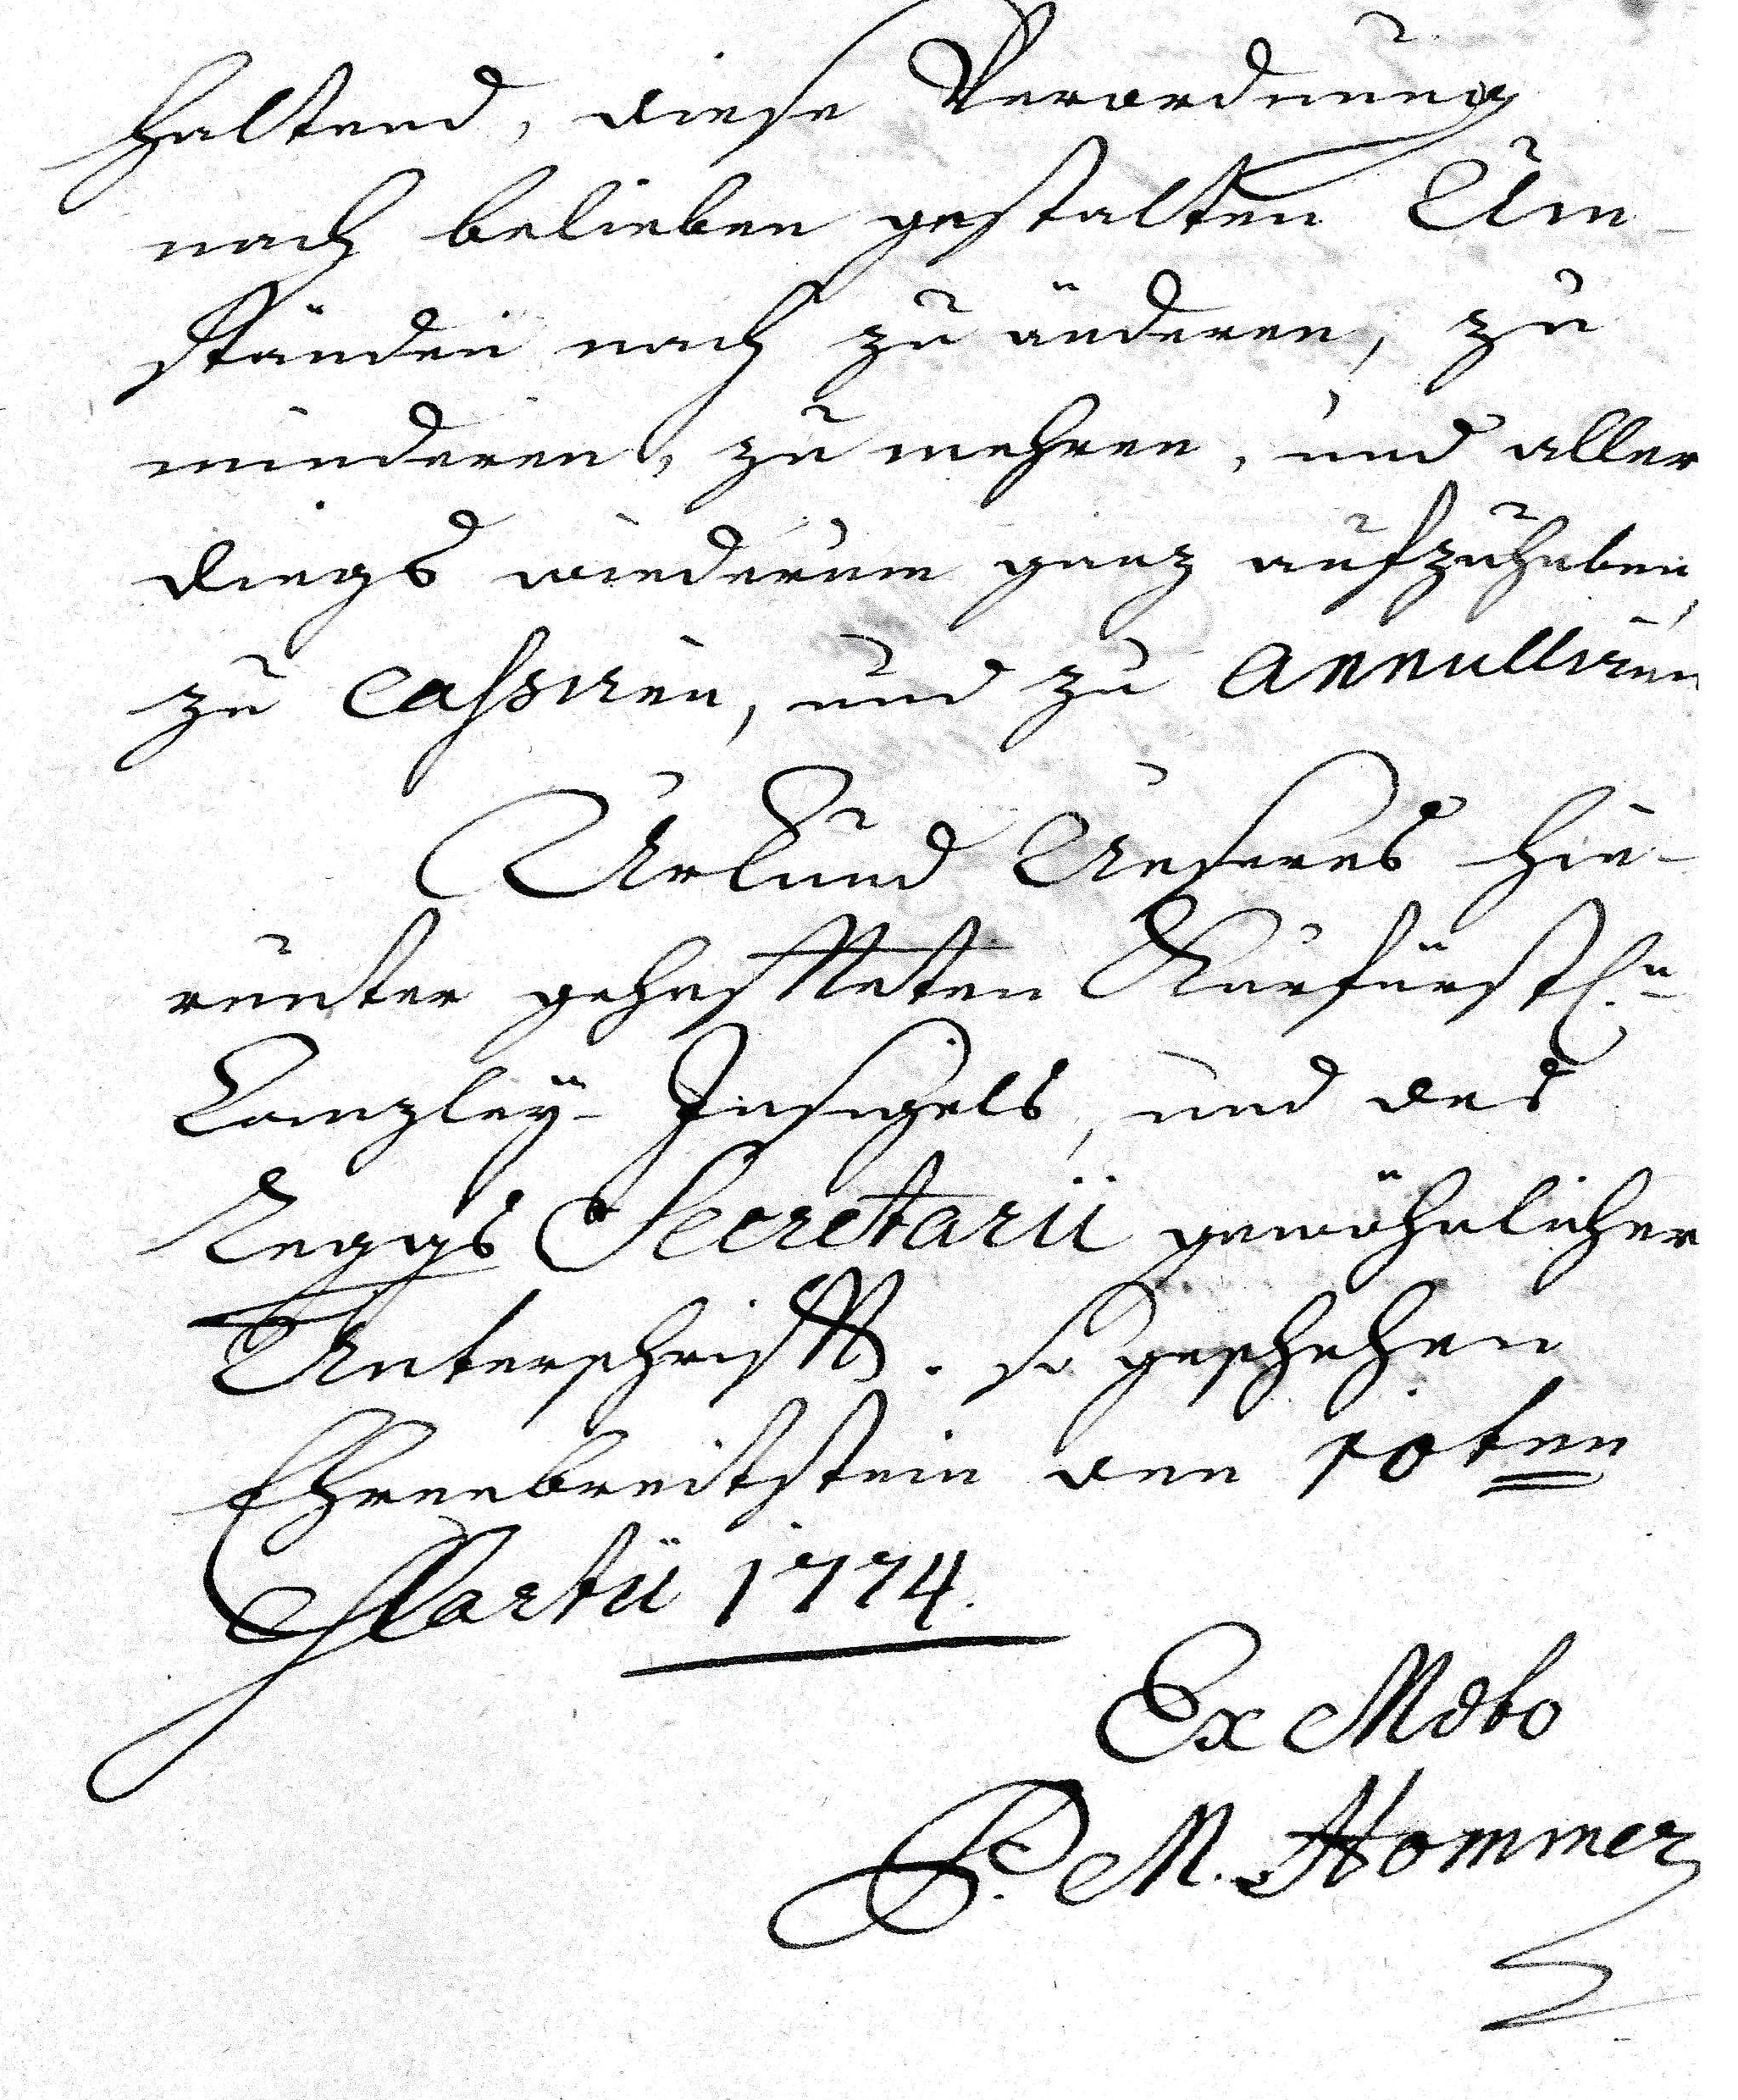 haltend, diese Verordnung
nach belieben gestalten Um-
ständen nach zu änderen, zu
minderen, zu mehren, und aller
dings wiederum ganz aufzuheben,
zu cassiren, und zu annulliren
Urkund Unseres hie-
runter gehefftteten Kurfürstl.n
Canzleÿ-Insigels, und des
Reggs Secretarii gewöhnlicher
Unterschrifft. so geschehen
Ehrenbreitstein den 10ten
Martii 1774.
Ex Mdto
P. M. Hommer